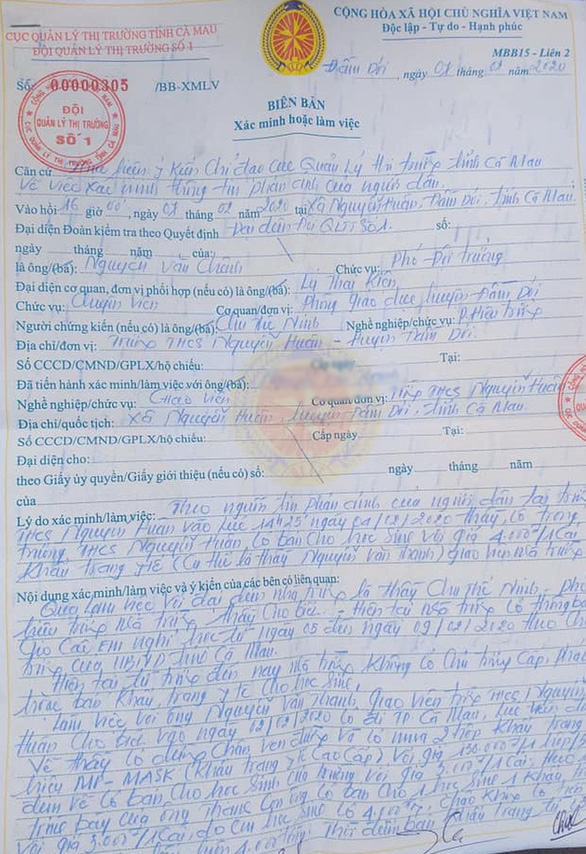 CỤC QUẢN LÝ THỊ TRƯỜNG TỈNH CÀ MAU
ĐỘI QUẢN LÝ THỊ TRƯỜNG SỐ 1
CỘNG HÒA XÃ HỘI CHỦ NGHĨA VIỆT NAM
Độc lập - Tự do - Hạnh phúc
MBB15 - Liên 2
Số: 00000305 /BB-XMLV
Đầm Dơi, ngày 07 tháng 02 năm 2020
ĐỘI
QUẢN LÝ THỊ TRƯỜNG
SỐ 1
BIÊN BẢN
Xác minh hoặc làm việc
Căn cứ Thực hiện ý kiến chỉ đạo Cục Quản Lý thị trường tỉnh Cà Mau
Về việc xác minh thông tin phản ánh của người dân.
Vào hồi 16 giờ 00, ngày 07 tháng 02 năm 2020 tại Xã Nguyễn Huân, Đầm Dơi, tỉnh Cà Mau.
Đại diện Đoàn kiểm tra theo Quyết định Đại diện Đội QLTT số 1. số:
ngày tháng năm của
là ông/(bà): Nguyễn Văn Chành Chức vụ: Phó Đội trưởng
Đại diện cơ quan, đơn vị phối hợp (nếu có) là ông/(bà): Lý Thái Kiên
Chức vụ: Chuyên viên Cơ quan/đơn vị: Phòng giáo dục huyện Đầm Dơi
Người chứng kiến (nếu có) là ông/(bà) Chu Thế Ninh Nghề nghiệp/chức vụ: P. Hiệu trưởng
Địa chỉ/đơn vị: Trường THCS Nguyễn Huân - Huyện Đầm Dơi.
Số CCCD/CMND/GPLX/hộ chiếu: Tại:
Đã tiến hành xác minh/làm việc với ông/(bà):
Nghề nghiệp/chức vụ: Giáo viên Cơ quan/đơn vị: Trường THCS Nguyễn Huân
Địa chỉ/quốc tịch: Xã Nguyễn Huân, huyện Đầm Dơi, tỉnh Cà Mau.
Số CCCD/CMND/GPLX/hộ chiếu: Cấp ngày Tại:
Đại diện cho:
theo Giấy ủy quyền/Giấy giới thiệu (nếu có) số: ngày tháng năm
của
Lý do xác minh/làm việc: Theo nguồn tin phản ánh của người dân tại trường
THCS Nguyễn Huân vào lúc 14h25 ngày 02/02/2020 thấy có trong
trường THCS Nguyễn Huân có bán cho học sinh với giá 4.000đ/1 cái
Khẩu trang y tế (Cụ thể là thầy Nguyễn Văn Thành) giáo viên nhà trường
Nội dung xác minh/làm việc và ý kiến của các bên có liên quan:
Qua làm việc với đại diện nhà trường là thầy Chu Thế Ninh, phó
hiệu trưởng nhà trường thầy cho biết. - Hiện tại nhà trường có thông báo
cho các em nghỉ học từ ngày 03 đến ngày 09/02/2020 theo
của UBND tỉnh Cà Mau.
Hiện tại từ trước đến nay nhà trường không có chủ trương cấp phát
bán khẩu trang y tế cho học sinh.
Làm việc với ông Nguyễn Văn Thành, giáo viên trường THCS Nguyễn
Huân cho biết vào ngày 02/02/2020 có đi TP Cà Mau, lúc
Về thầy có dừng chân ven đường và có mua 2 hộp khẩu trang
hiệu MP-MASK (Khẩu trang y tế cao cấp) với giá 150.000đ/1 hộp
đem về có bán cho học sinh cho trường với giá 3.000đ/1 cái,
trình bày của ông Thành có bán cho 1 học sinh 1 khẩu
với giá 3.000đ/1 cái, do học sinh có 4.000đ,
4.000 Thời điểm bán khẩu trang